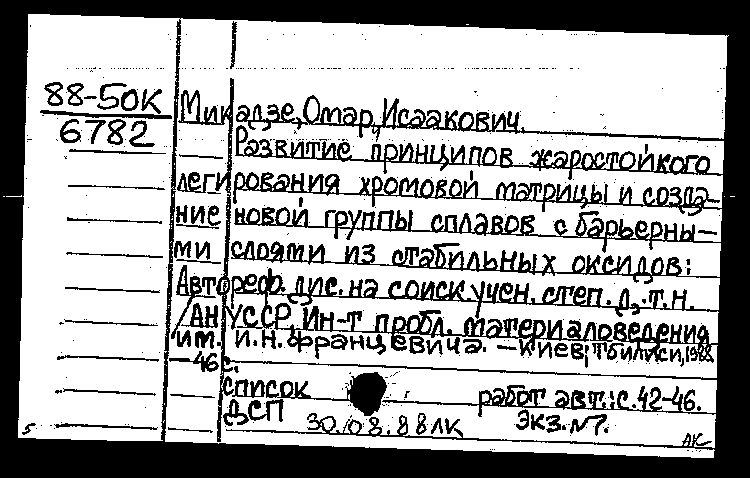 88-50К
6782
Микадзе, Омар, Исаакович.
Развитие принципов жаростойкого
легирования хромовой матрицы и созда-
ние новой группы сплавов с барьерны-
ми слоями из стабильных оксидов:
Автореф. дис. на соиск. учен. степ. д. т. н.
/АН УССР, Ин-т пробл. материаловедения
им. И. Н. Францевича. — Киев; Тбилиси, 1988.
— 46 с.
список работ авт.: с. 42-46.
ДСП 30.08.88 ЛК экз. №7.
5 АК